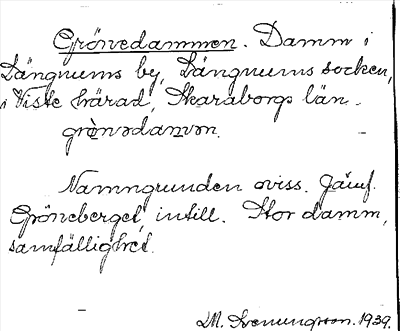 Grönedammen. Damm i
Längnums by, Längnums socken,
i Viste härad, Skaraborgs län.
grònədamən.
Namngrunden oviss. Jämf.
Gröneberget, intill. Stor damm,
samfällighet.
M. Svenungsson. 1939.